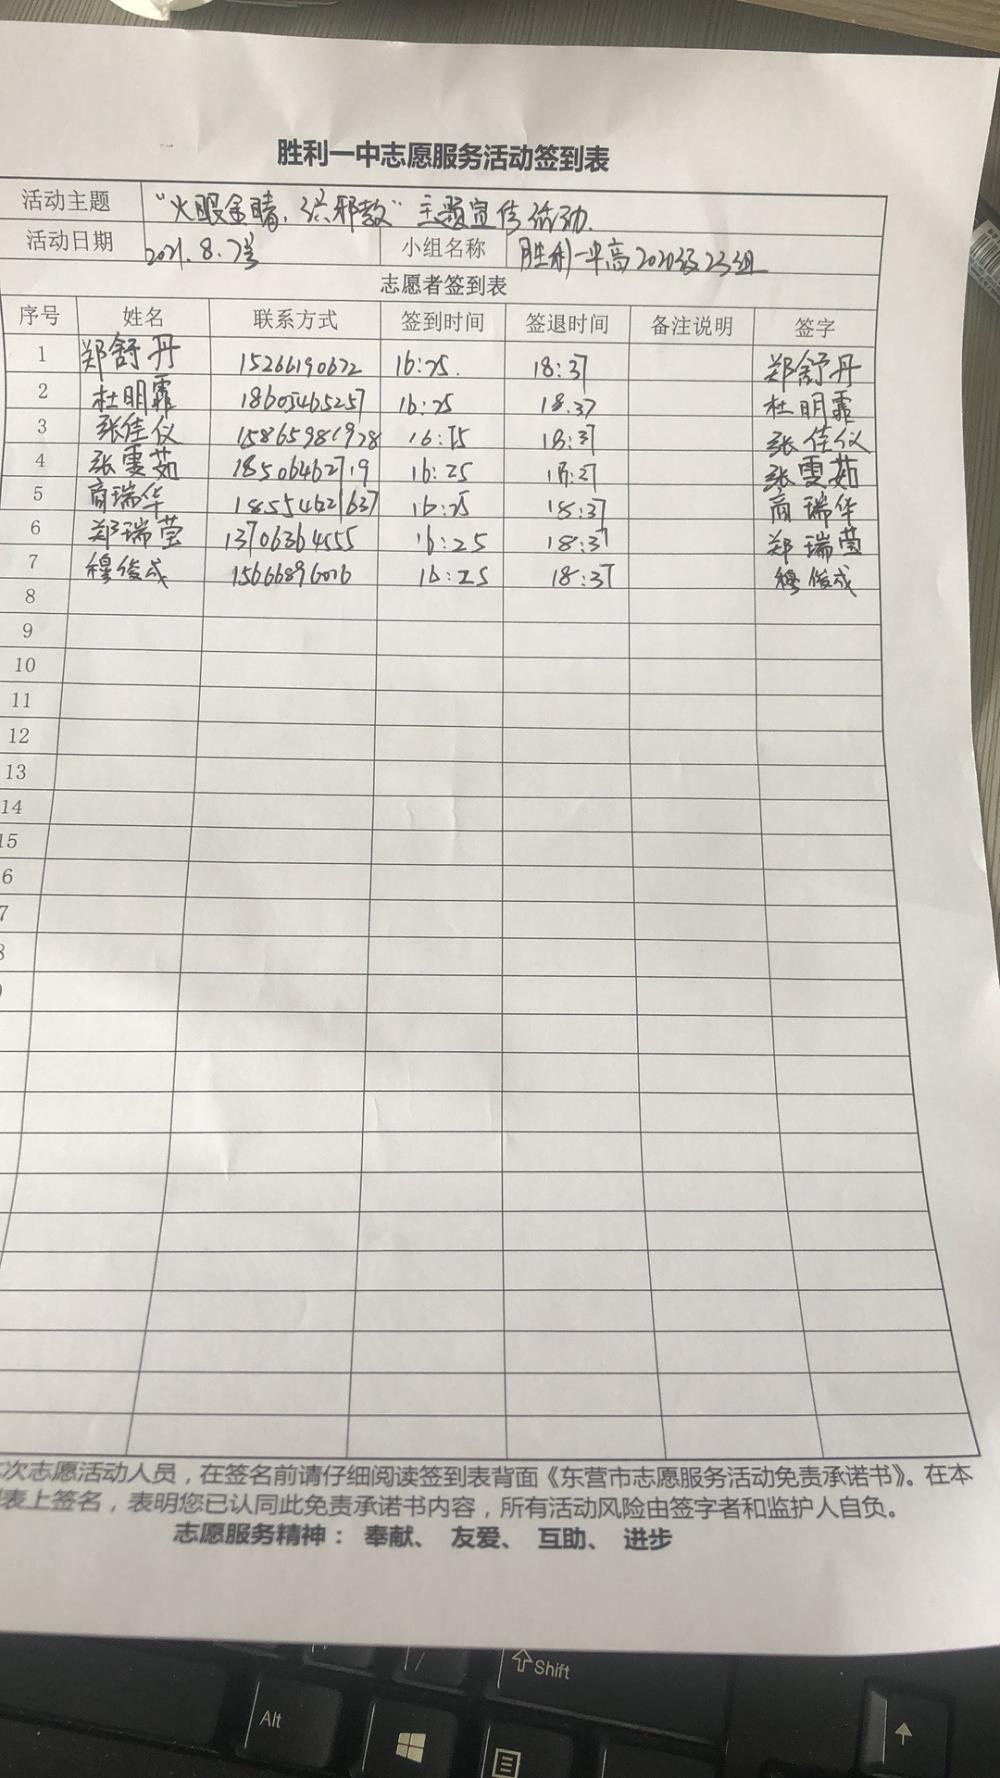 胜利一中志愿服务活动签到表
活动主题 “火眼金睛,识邪教”主题宣传活动.
活动日期 2021.8.7号 小组名称 胜利一中高2020级23组
志愿者签到表
序号 姓名 联系方式 签到时间 签退时间 备注说明 签字
1 郑舒丹 15266190672 16:25. 18:37 郑舒丹
2 杜明霏 18605465257 16:25 18.37 杜明霏
3 张佳仪 15865981928 16:25 18:37 张佳仪
4 张雯茹 18506462719 16:25 18:37 张雯茹
5 商瑞华 18554621637 16:25 18:37 商瑞华
6 郑瑞莹 13706364555 16:25 18:37 郑瑞莹
7 穆俊成 15666896016 16:25 18:37 穆俊成
8
9
10
11
12
13
14
15
6
7
8
次志愿活动人员，在签名前请仔细阅读签到表背面《东营市志愿服务活动免责承诺书》。在本
表上签名，表明您已认同此免责承诺书内容，所有活动风险由签字者和监护人自负。
志愿服务精神： 奉献、 友爱、 互助、 进步
Shift
Alt